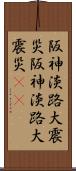 阪神淡路大震
災阪神淡路大
震災